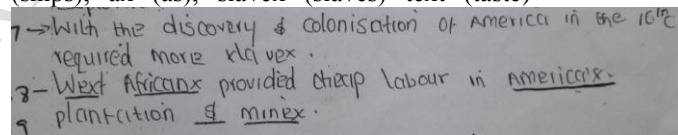 7→With the discovery & colonisation of America in the 16th C
required more xlavex.
8- Wext Africanx provided cheap labour in America'x.
9 plantation & minex.